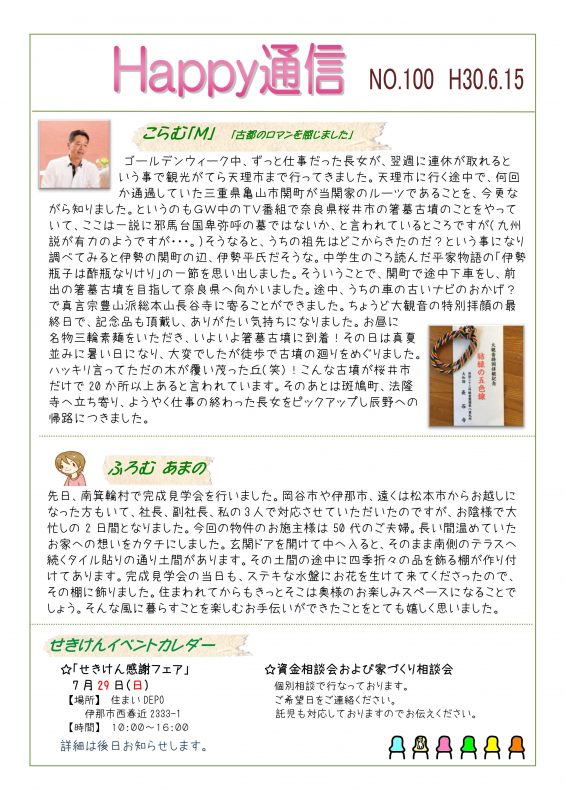 Happy通信 NO.100 H30.6.15
こらむ「M」 「古都のロマンを感じました」
ゴールデンウィーク中、ずっと仕事だった長女が、翌週に連休が取れると
いう事で観光がてら天理市まで行ってきました。天理市に行く途中で、何回
か通過していた三重県亀山市関町が当関家のルーツであることを、今更な
がら知りました。というのもGW中のTV番組で奈良県桜井市の箸墓古墳のことをやって
いて、ここは一説に邪馬台国卑弥呼の墓ではないか、と言われているところですが(九州
説が有力のようですが・・・。)そうなると、うちの祖先はどこからきたのだ?という事になり
調べてみると伊勢の関町の辺、伊勢平氏だそうな。中学生のころ読んだ平家物語の「伊勢
瓶子は酢瓶なりけり」の一節を思い出しました。そういうことで、関町で途中下車をし、前
出の箸墓古墳を目指して奈良県へ向かいました。途中、うちの車の古いナビのおかげ?
で真言宗豊山派総本山長谷寺に寄ることができました。ちょうど大観音の特別拝顔の最
終日で、記念品も頂戴し、ありがたい気持ちになりました。お昼に
名物三輪素麺をいただき、いよいよ箸墓古墳に到着!その日は真夏
並みに暑い日になり、大変でしたが徒歩で古墳の廻りをめぐりました。
ハッキリ言ってただの木が覆い茂った丘(笑)!こんな古墳が桜井市
だけで20か所以上あると言われています。そのあとは斑鳩町、法隆
寺へ立ち寄り、ようやく仕事の終わった長女をピックアップし辰野への
帰路につきました。
大観音特別拝顔記念
結縁の五色線
長谷寺
ふろむ あまの
先日、南箕輪村で完成見学会を行いました。岡谷市や伊那市、遠くは松本市からお越しに
なった方もいて、社長、副社長、私の3人で対応させていただいたのですが、お陰様で大
忙しの2日間となりました。今回の物件のお施主様は50代のご夫婦。長い間温めていた
お家への想いをカタチにしました。玄関ドアを開けて中へ入ると、そのまま南側のテラスへ
続くタイル貼りの通り土間があります。その土間の途中に四季折々の品を飾る棚が作り付
けてあります。完成見学会の当日も、ステキな水盤にお花を生けて来てくださったので、
その棚に飾りました。住まわれてからもきっとそこは奥様のお楽しみスペースになることで
しょう。そんな風に暮らすことを楽しむお手伝いができたことをとても嬉しく思いました。
せきけんイベントカレダー
☆「せきけん感謝フェア」
7月29日(日)
【場所】 住まいDEPO
伊那市西春近2333-1
【時間】 10:00~16:00
詳細は後日お知らせします。
☆資金相談会および家づくり相談会
個別相談で行なっております。
ご希望日をご連絡ください。
託児も対応しておりますのでお伝えください。